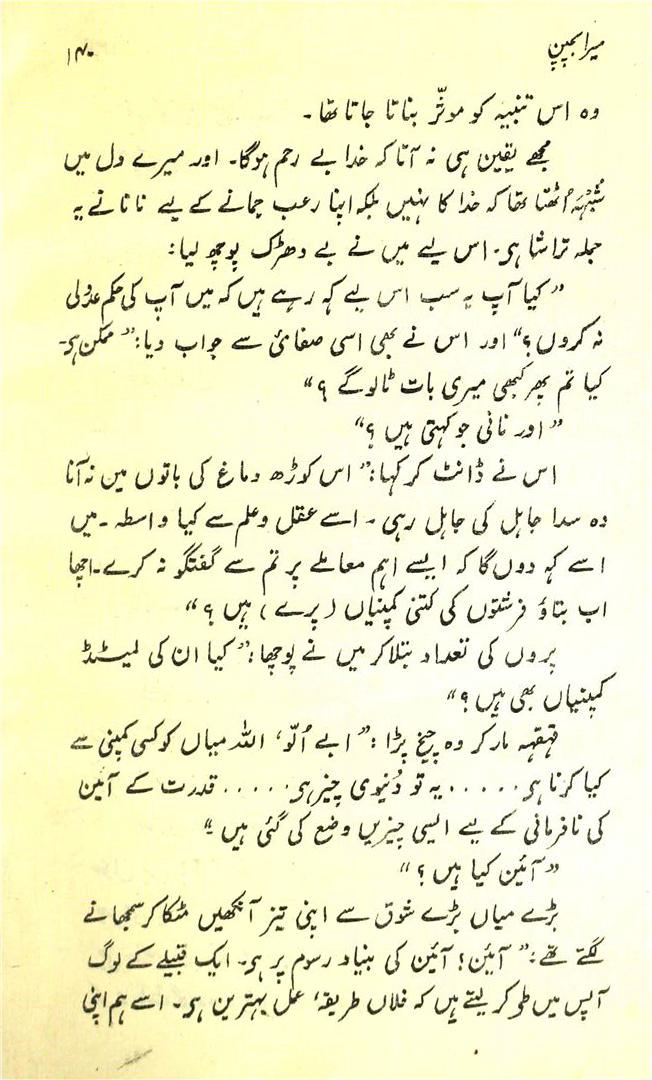 میرا بچپن ۱۴۰
وہ اس تنبیہ کو موثّر بناتا جاتا تھا۔
مجھے یقین ہی نہ آتا کہ خدا بے رحم ہوگا۔ اور میرے دل میں
شُبہہ اُٹھتا تھا کہ خدا کا نہیں بلکہ اپنا رعب جمانے کے لیے نانا نے یہ
جملہ تراشا ہی۔ اس لیے میں نے بے دھڑک پوچھ لیا:
”کیا آپ یہ سب اس لیے کہہ رہے ہیں کہ میں آپ کی حکم عدولی
نہ کروں؟“ اور اس نے بھی اسی صفائی سے جواب دیا: ”ممکن ہی۔
کیا تم پھر کبھی میری بات ٹالوگے ؟“
”اور نانی جو کہتی ہیں ؟“
اس نے ڈانٹ کر کہا: ”اس کوڑھ دماغ کی باتوں میں نہ آنا
وہ سدا جاہل کی جاہل رہی۔ اسے عقل و علم سے کیا واسطہ۔ میں
اسے کہہ دوں گا کہ ایسے اہم معاملے پر تم سے گفتگو نہ کرے۔ اچھا
اب بتاؤ فرشتوں کی کتنی کمپنیاں (پرے) ہیں ؟“
پروں کی تعداد بتلا کر میں نے پوچھا: ”کیا ان کی لمیٹڈ
کمپنیاں بھی ہیں ؟“
قہقہہ مار کر وہ چیخ پڑا: ”ابے اُلّو، اللہ میاں کو کسی کمپنی سے
کیا کرنا ہی ..... یہ تو دُنیوی چیز ہی ..... قدرت کے آئین
کی نافرمانی کے لیے ایسی چیزیں وضع کی گئی ہیں“
”آئین کیا ہیں ؟“
بڑے میاں بڑے شوق سے اپنی تیز آنکھیں مٹکا کر سمجھانے
لگتے تھے: ”آئین! آئین کی بنیاد رسوم پر ہی۔ ایک قبیلے کے لوگ
آپس میں طی کر لیتے ہیں کہ فلاں طریقۂ عمل بہترین ہی۔ اسے ہم اپنی